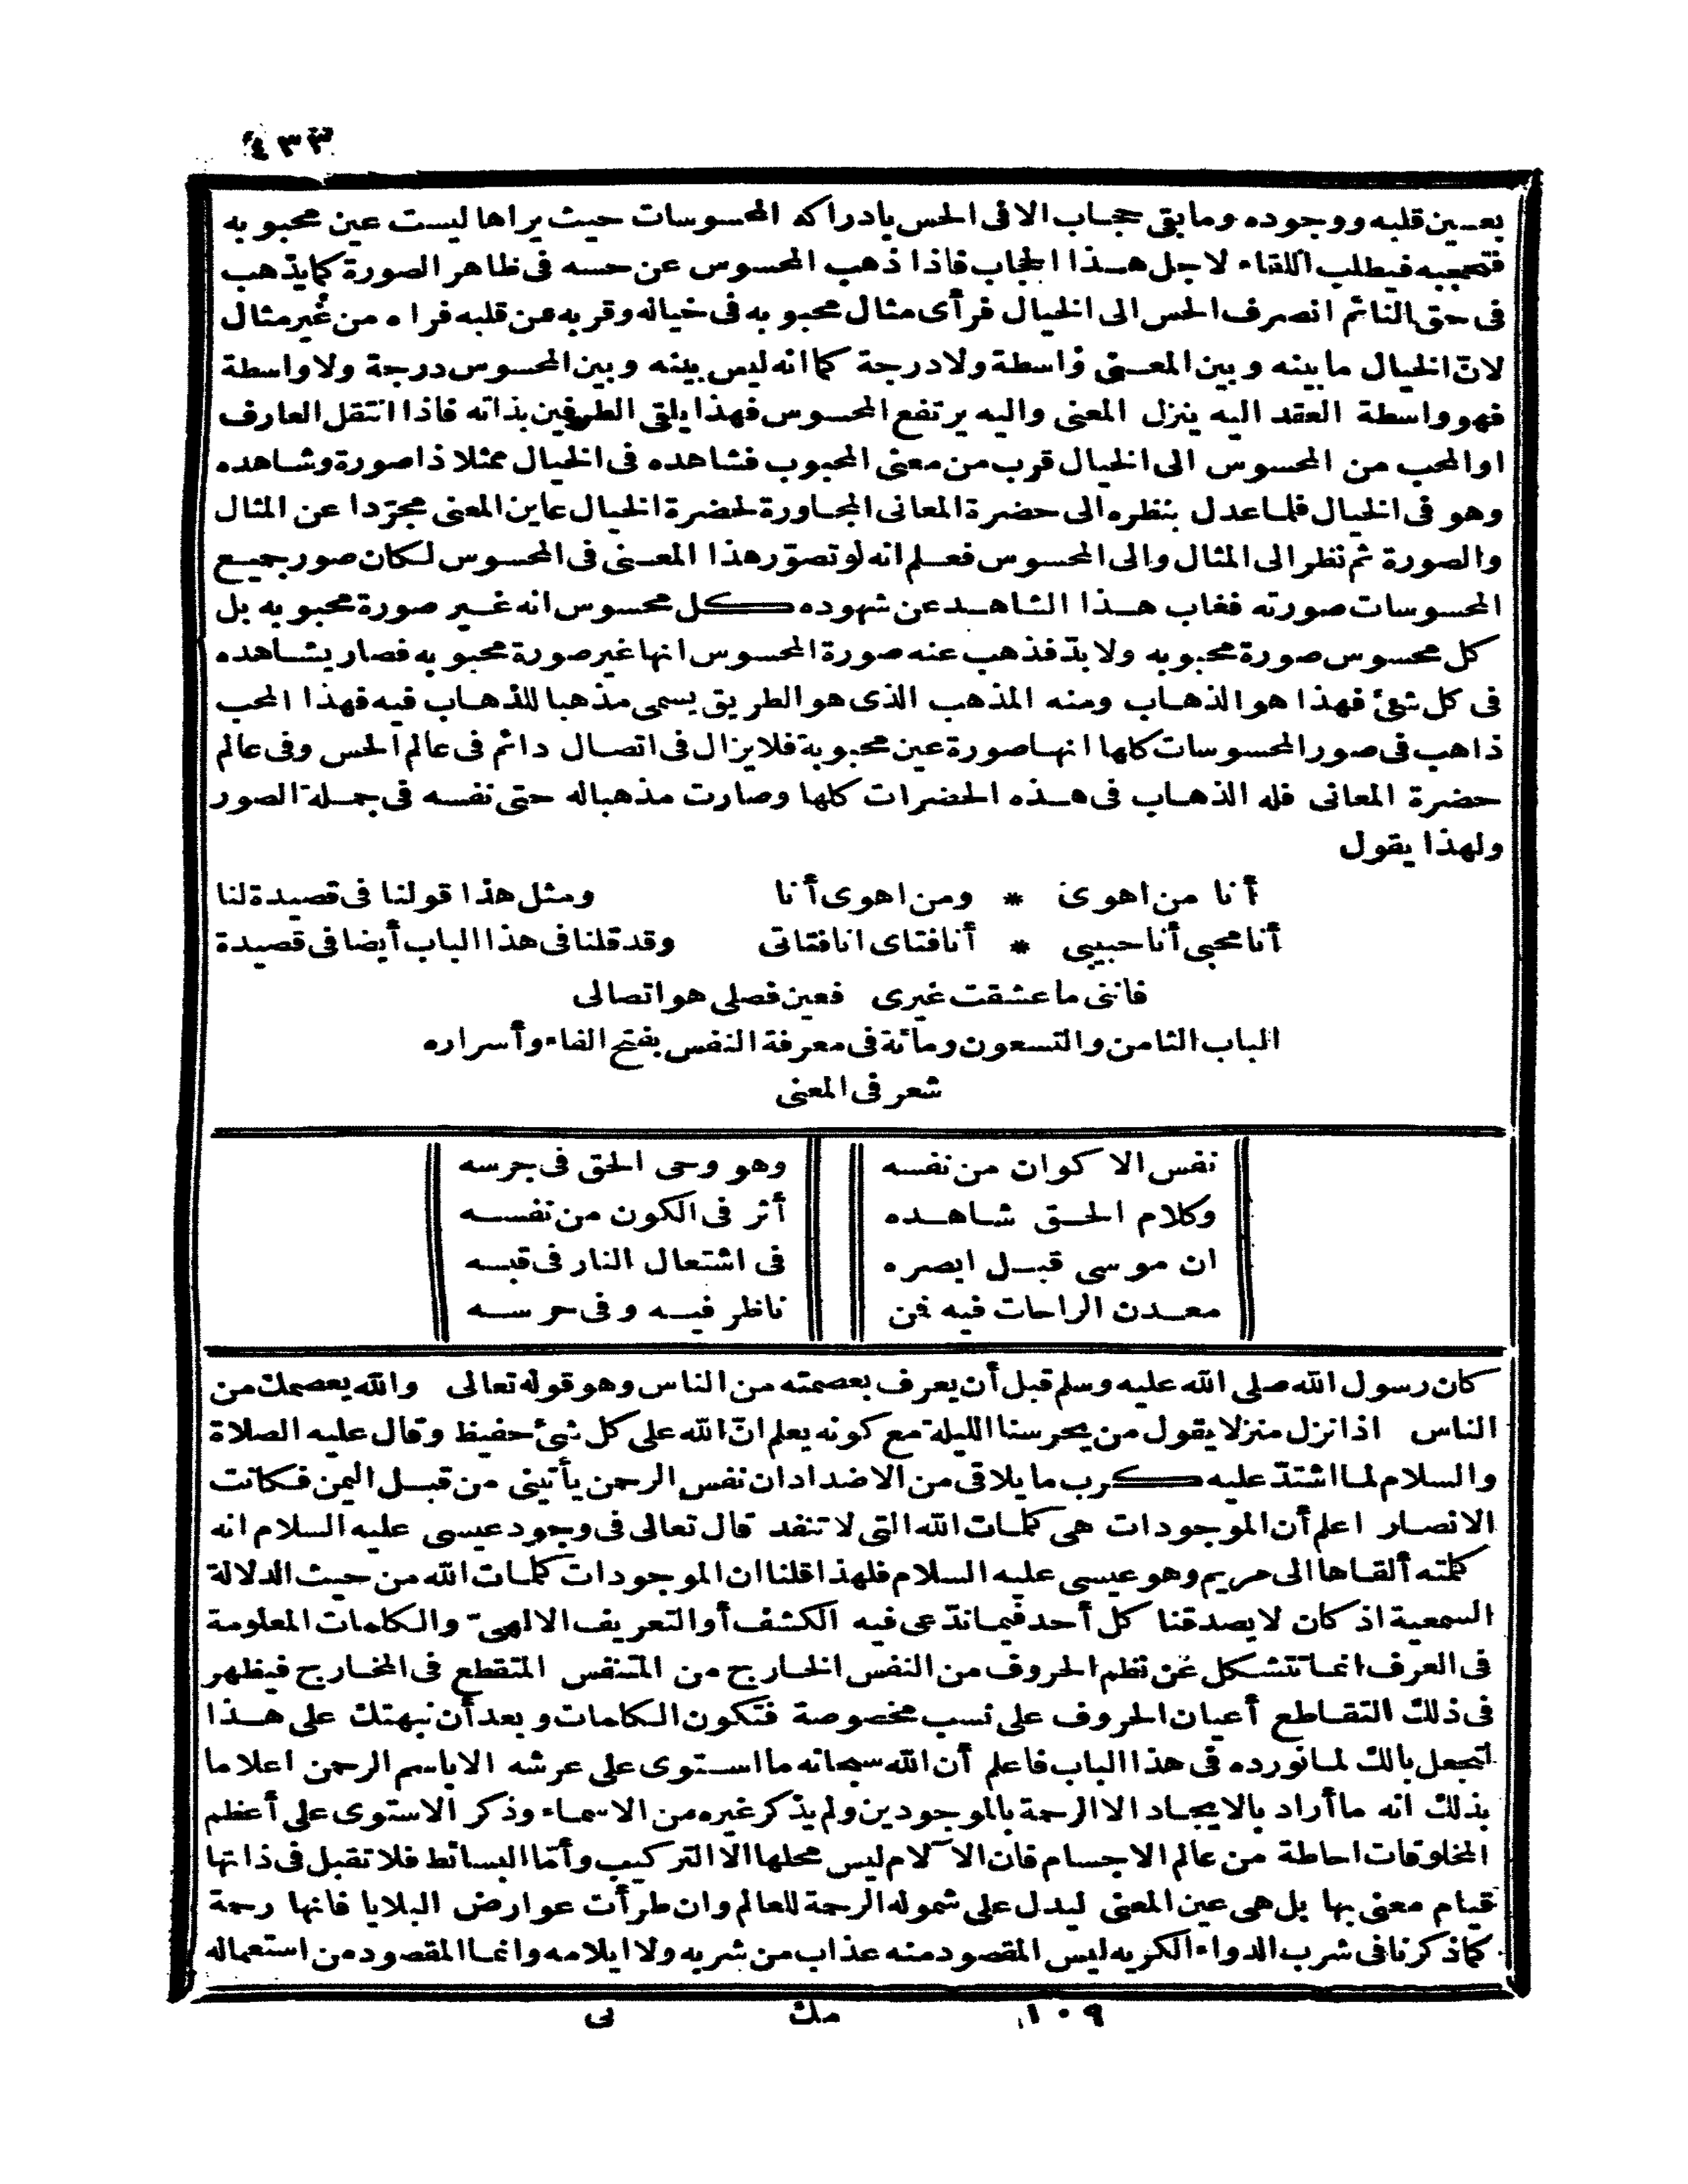 ٤٣٣
بعين قلبه ووجوده وما بقى حجاب الا فى الحس بادراكه المحسوسات حيث يراها ليست عين محبوبه
فتحجبه فيطلب اللقاء لاجل هذا الحجاب فاذا ذهب المحسوس عن حسه فى ظاهر الصورة كما يذهب
فى حق النائم انصرف الحس الى الخيال فرأى مثال محبوبه فى خياله وقربه من قلبه فراه من غير مثال
لانّ الخيال ما بينه وبين المعنى واسطة ولا درجة كما انه ليس بينه وبين المحسوس درجة ولا واسطة
فهو واسطة العقد اليه ينزل المعنى واليه يرتفع المحسوس فهذا يلقى الطرفين بذاته فاذا انتقل العارف
او المحب من المحسوس الى الخيال قرب من معنى المحبوب فشاهده فى الخيال ممثلا ذا صورة وشاهده
وهو فى الخيال فلما عدل بنظره الى حضرة المعانى المجاورة لحضرة الخيال عاين المعنى مجرّدا عن المثال
والصورة ثم نظر الى المثال والى المحسوس فعلم انه لو تصوّر هذا المعنى فى المحسوس لكان صور جميع
المحسوسات صورته فغاب هذا الشاهد عن شهوده كل محسوس انه غير صورة محبوبه بل
كل محسوس صورة محبوبه ولا بدّ فذهب عنه صورة المحسوس انها غير صورة محبوبه فصار يشاهده
فى كل شئ فهذا هو الذهاب ومنه المذهب الذى هو الطريق يسمى مذهبا للذهاب فيه فهذا المحب
ذاهب فى صور المحسوسات كلها انها صورة عين محبوبة فلا يزال فى اتصال دائم فى عالم الحس وفى عالم
حضرة المعانى فله الذهاب فى هذه الحضرات كلها وصارت مذهباله حتى نفسه فى جملة الصور
ولهذا يقول
أنا من اهوى * ومن اهوى أنا ومثل هذا قولنا فى قصيدة لنا
أنا محبى أنا حبيبى * أنا فتاى انا فتاتى وقد قلنا فى هذا الباب أيضا فى قصيدة
فاننى ما عشقت غيرى فعين فصلى هو اتصالى
الباب الثامن والتسعون ومائة فى معرفة النفس بفتح الفاء وأسراره
شعر فى المعنى
نفس الاكوان من نفسه وهو وحى الحق فى جرسه
وكلام الحق شاهده أثر فى الكون من نفسه
ان موسى قبل ابصره فى اشتعال النار فى قبسه
معدن الراحات فيه فمن ناظر فيه وفى حرسه
كان رسول الله صلى الله عليه وسلم قبل أن يعرف بعصمته من الناس وهو قوله تعالى والله يعصمك من
الناس اذا نزل منزلا يقول من يحرسنا الليلة مع كونه يعلم انّ الله على كل شئ حفيظ وقال عليه الصلاة
والسلام لما اشتدّ عليه كرب ما يلاقى من الاضداد ان نفس الرحمن يأتينى من قبل اليمن فكانت
الانصار اعلم أن الموجودات هى كلمات الله التى لا تنفد قال تعالى فى وجود عيسى عليه السلام انه
كلمته ألقاها الى مريم وهو عيسى عليه السلام فلهذا قلنا ان الموجودات كلمات الله من حيث الدلالة
السمعية اذ كان لا يصدقنا كل أحد فيما ندّعى فيه الكشف أو التعريف الالهىّ والكلمات المعلومة
فى العرف انما تتشكل عن نظم الحروف من النفس الخارج من المتنفس المتقطع فى المخارج فيظهر
فى ذلك التقاطع أعيان الحروف على نسب مخصوصة فتكون الكلمات وبعد أن نبهتك على هذا
لتجعل بالك لما نورده فى هذا الباب فاعلم أن الله سبحانه ما استوى على عرشه الا باسم الرحمن اعلاما
بذلك انه ما أراد بالايجاد الا الرحمة بالموجودين ولم يذكر غيره من الاسماء وذكر الاستوى على أعظم
المخلوقات احاطة من عالم الاجسام فان الآلام ليس محلها الا التركيب وأمّا البسائط فلا تقبل فى ذاتها
قيام معنى بها بل هى عين المعنى ليدل على شموله الرحمة للعالم وان طرأت عوارض البلايا فانها رحمة
كما ذكرنا فى شرب الدواء الكريه ليس المقصود منه عذاب من شربه ولا ايلامه وانما المقصود من استعماله
١٠٩ مك نى